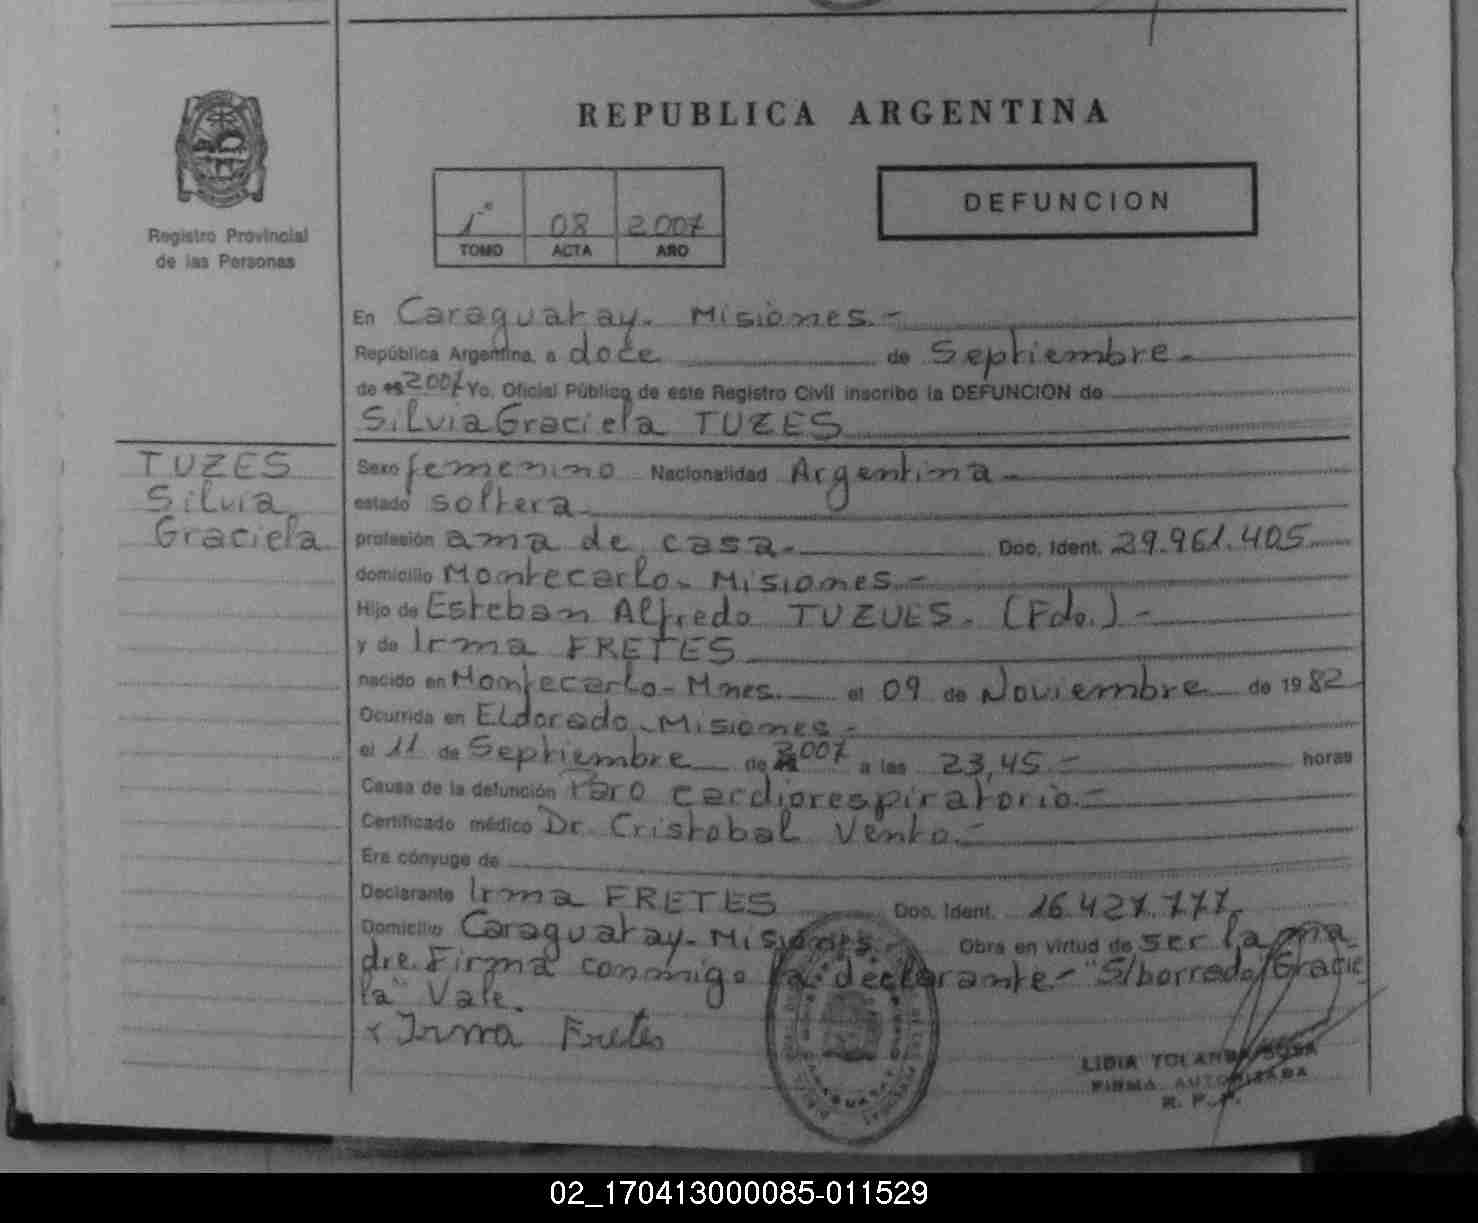 REPUBLICA ARGENTINA
Registro Provincial
de las Personas
1° 08 2007
TOMO ACTA AÑO
DEFUNCION
En Caraguatay. Misiones.-
República Argentina, a doce de Septiembre.
de 2007 Yo, Oficial Público de este Registro Civil inscribo la DEFUNCION de
Silvia Graciela TUZES
TUZES
Silvia
Graciela
Sexo femenino Nacionalidad Argentina
estado soltera
profesión ama de casa.- Doc. Ident. 29.961.405
domicilio Montecarlo. Misiones.-
Hijo de Esteban Alfredo TUZUES. (Fdo.)-
y de Irma FRETES
nacido en Montecarlo-Mnes. el 09 de Noviembre de 1982
Ocurrida en Eldorado. Misiones.-
el 11 de Septiembre de 2007 a las 23,45.- horas
Causa de la defunción Paro cardiorespiratorio.-
Certificado médico Dr. Cristobal Vento.-
Era cónyuge de
Declarante Irma FRETES Doc. Ident. 16.427.777.
Domicilio Caraguatay. Misiones. Obra en virtud de ser la ma
dre. Firma conmigo la declarante.- "S/borrado/Gracie
la" Vale.
x Irma Fretes
LIDIA YOLANDA SOSA
FIRMA AUTORIZADA
R. P. P.
02_170413000085-011529